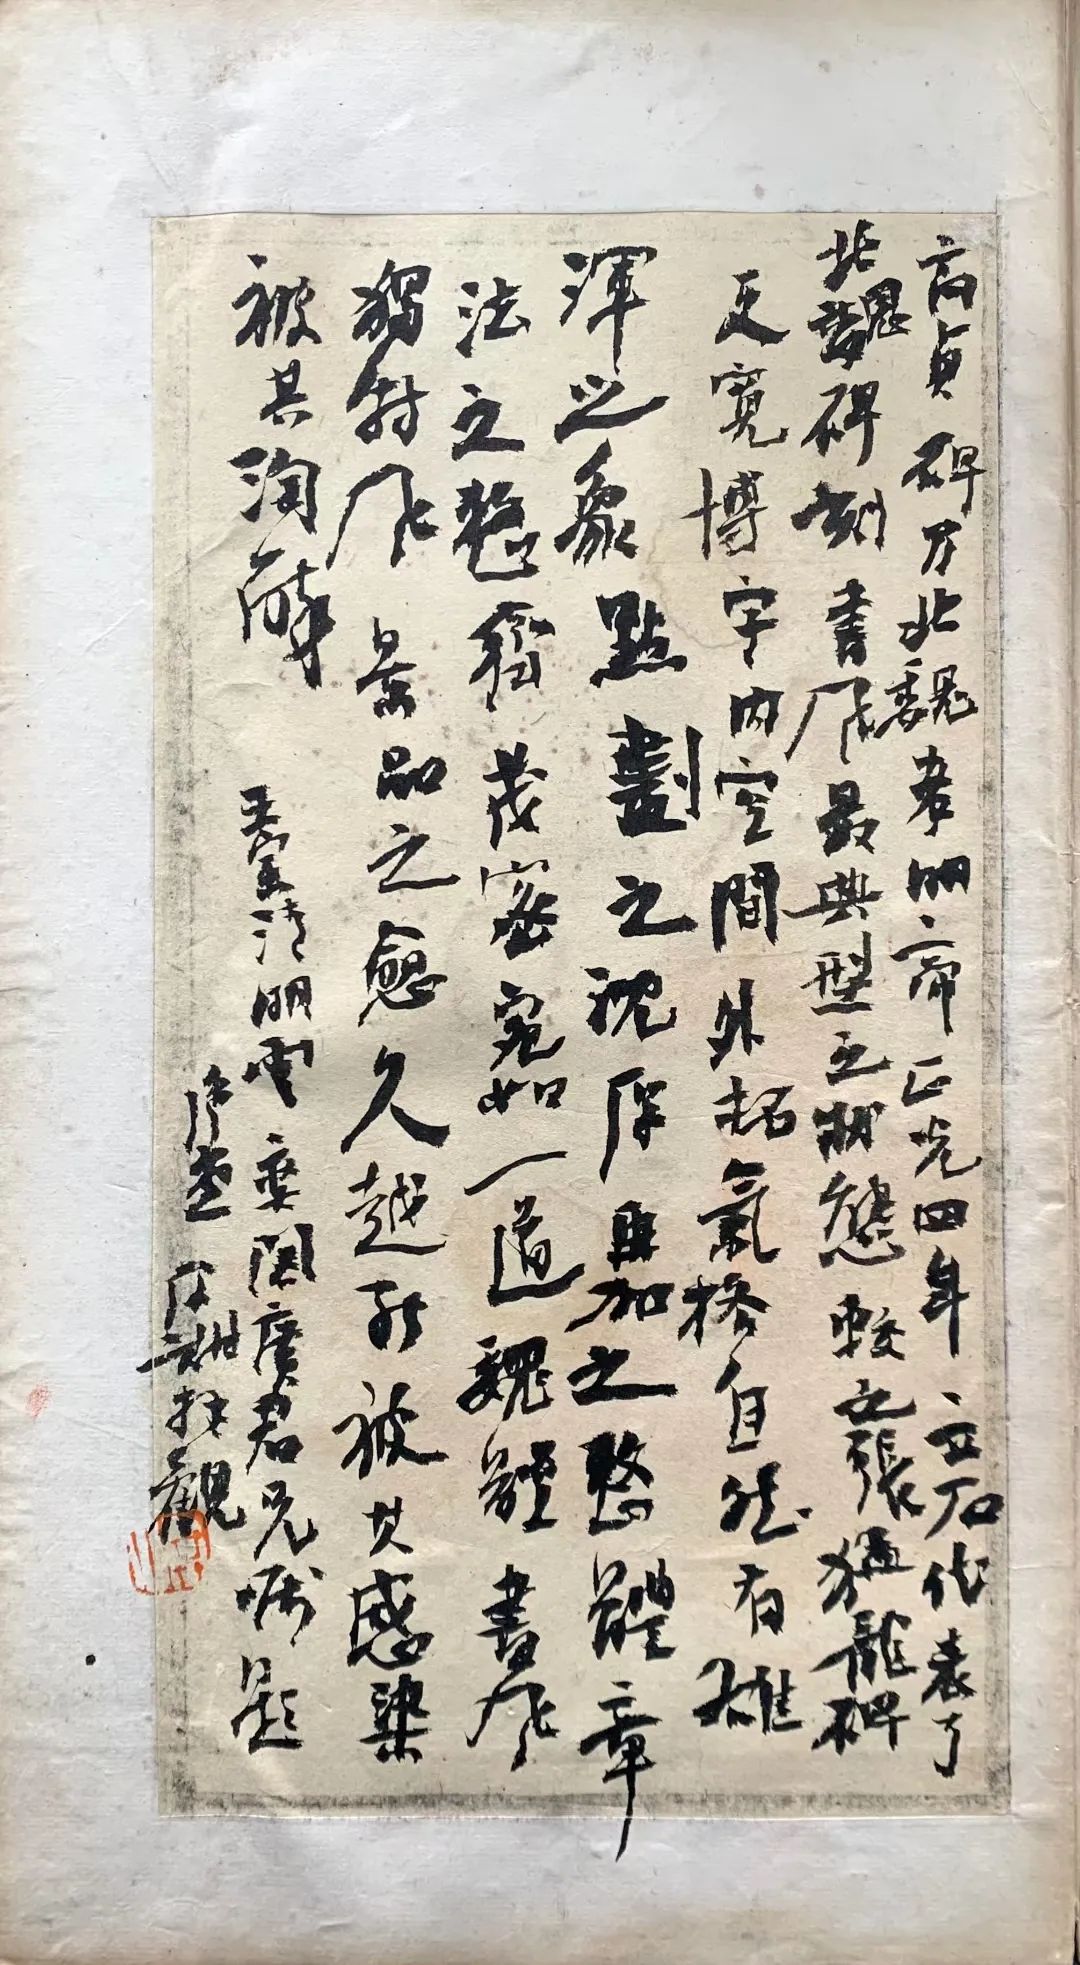 高貞碑乃北魏孝明帝正光四年立石代表了
北魏碑刻書風最典型之狀態較之張猛龍碑
更寬博字內空間外拓氣格自然有雄
渾之象點劃之沈厚再加之整體章
法之整齊茂密宛如一道魏體書風
獨特風景品之愈久越能被其感染
被其淘醉
壬寅清明雪棄閣廣君兄囑題
觀